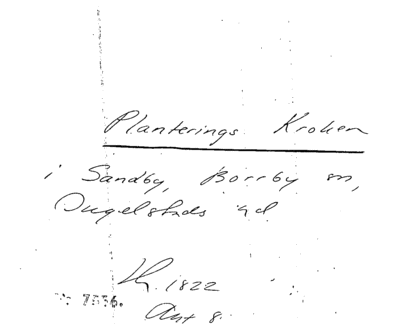 Planterings Kroken
i Sandby, Borrby sn,
Ingelstads hd
1822
7536.
8.